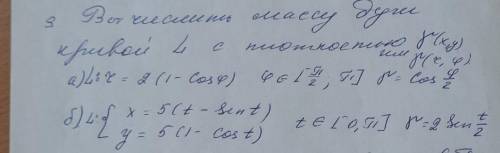 3 Вычислить массу дуги
кривой L с плотностью γ(x,y) или γ(r, φ)
а) L: r = 2 (1 - cos φ) φ ∈ [-π/2, π] γ = cos φ/2
б) L: { x = 5 (t - sin t)
y = 5 (1 - cos t) t ∈ [0, π] γ = 2 sin t/2